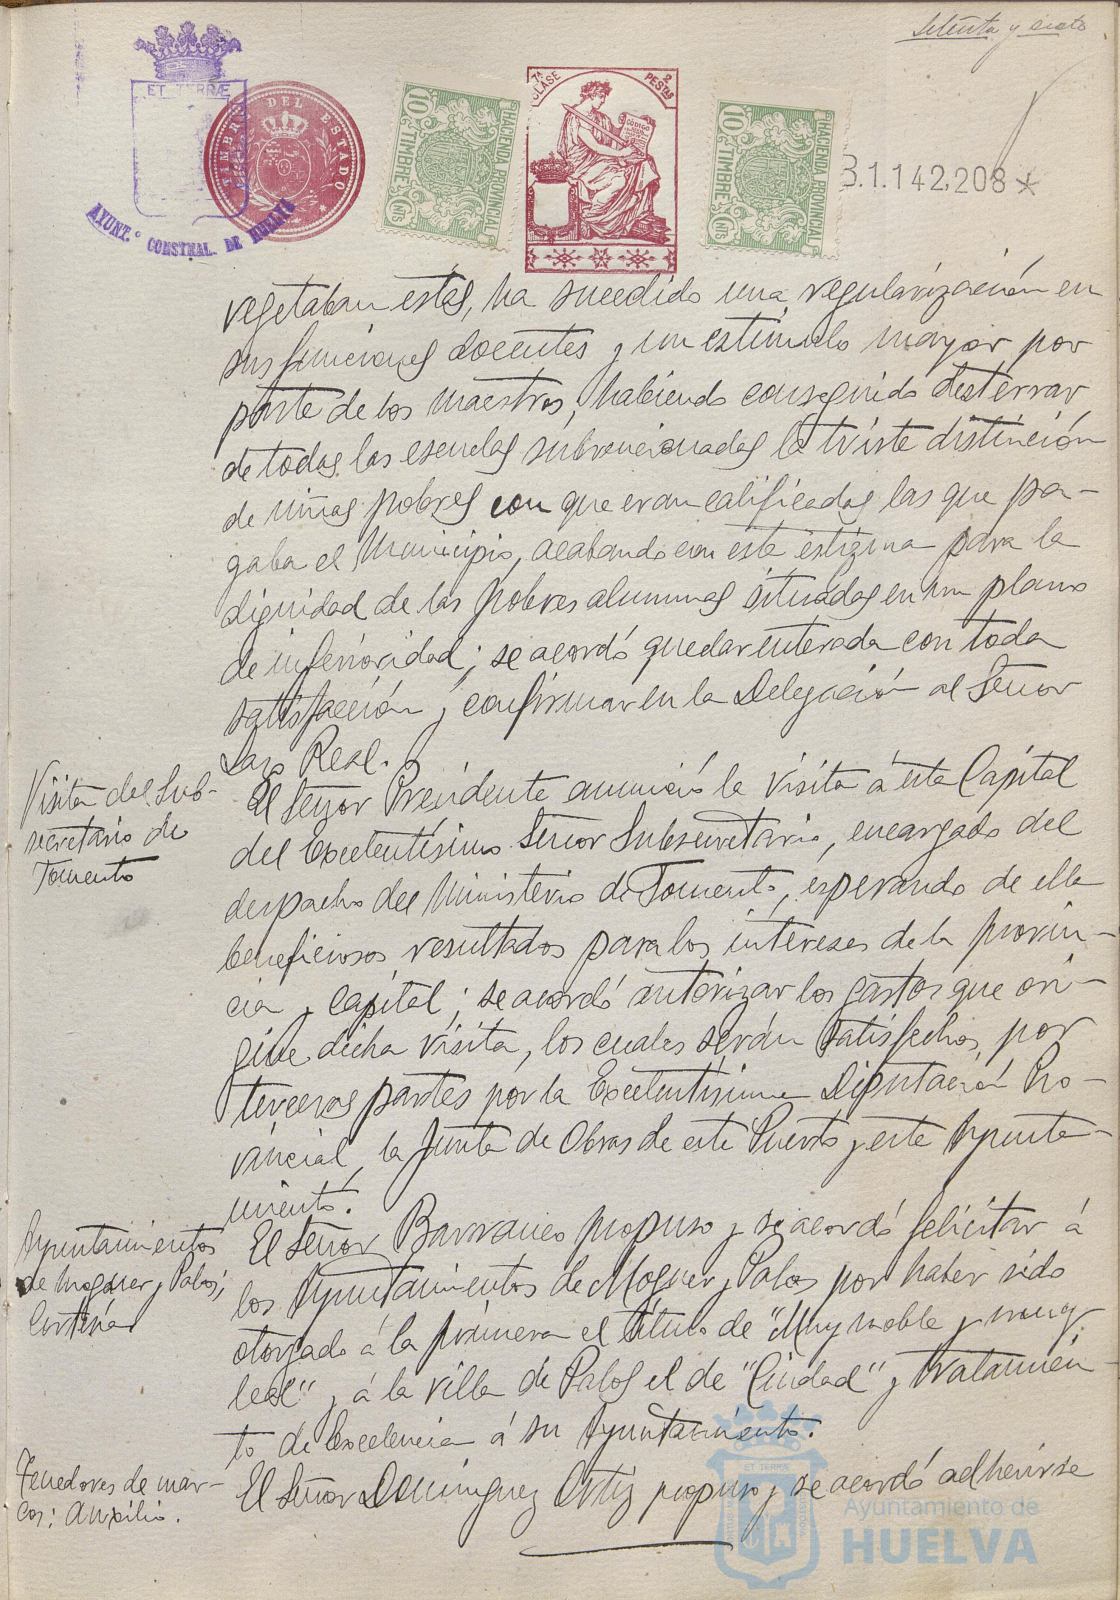 Setenta y
ET TERRÆ
AYUNT.º CONSTNAL. DE HUELVA
TIMBRE DEL ESTADO
10 CTS
HACIENDA PROVINCIAL
TIMBRE
7ª CLASE
2 PESTAS
CÓDIGO
10 CTS
HACIENDA PROVINCIAL
TIMBRE
B.1.142.208*
vegetaban estas, ha sucedido una regularización en
sus funciones docentes y un estímulo mayor por
parte de los maestros, habiendo conseguido desterrar
de todas las escuelas subvencionadas la triste distinción
de niñas pobres con que eran calificadas las que pa-
gaba el Municipio, acabando con este estigma para la
dignidad de las pobres alumnas situadas en un plano
de inferioridad; se acordó quedar enterada con toda
satisfacción y confirmar en la Delegación al Señor
Lazo Real.
Visita del Sub-
secretario de
Fomento
El Señor Presidente anunció la visita á esta Capital
del Excelentísimo Señor Subsecretario, encargado del
despacho del Ministerio de Fomento, esperando de ella
beneficiosos resultados para los intereses de la provin-
cia y capital; se acordó autorizar los gastos que ori-
gine dicha visita, los cuales serán satisfechos, por
terceras partes por la Excelentísima Diputación Pro-
vincial, la Junta de Obras de este Puerto y este Ayunta-
miento.
Ayuntamientos
de Moguer y Palos;
Cortesía
El Señor Barranco propuso y se acordó felicitar á
los Ayuntamientos de Moguer y Palos por haber sido
otorgado á la primera el título de "Muy noble y muy
leal" y á la villa de Palos el de "Ciudad" y tratamien-
to de Excelencia á su Ayuntamiento.
Tenedores de mar-
cos: Auxilio.
El Señor Dominguez Ortiz propuso y se acordó adherirse
ET TERRÆ
Ayuntamiento de
HUELVA